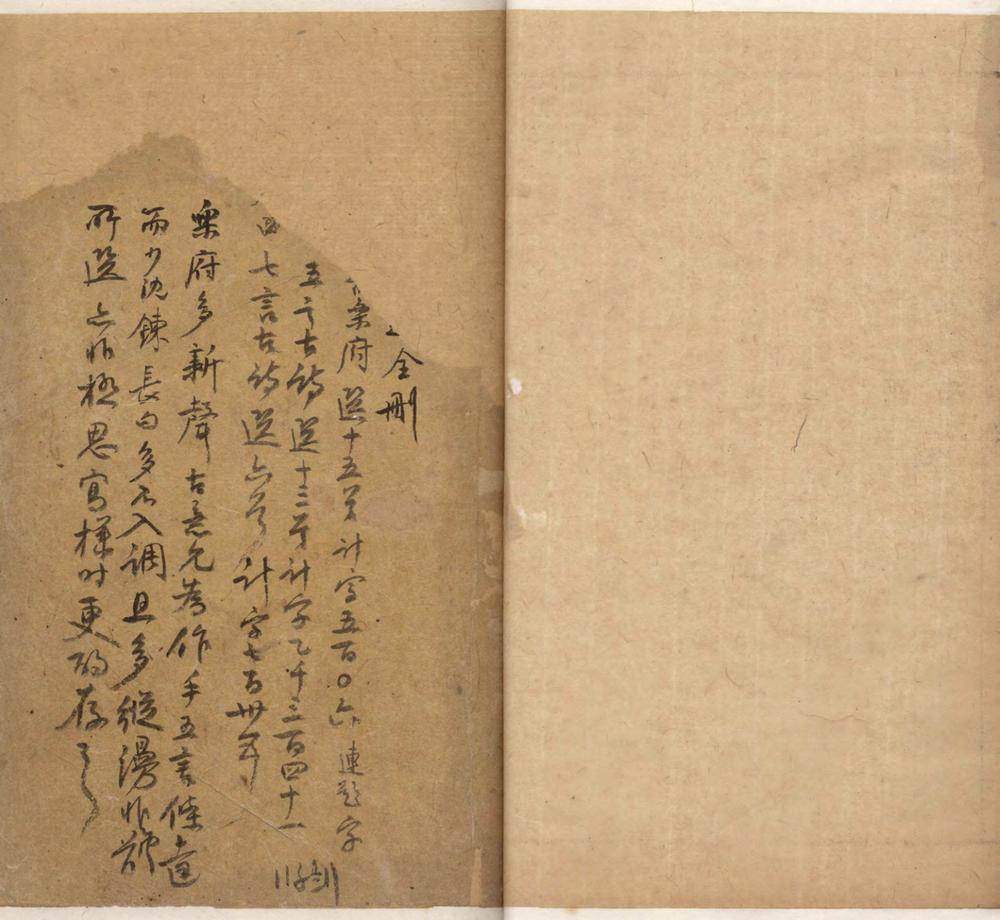 全刪
樂府選十五首計字五百〇六連題字
五言古詩選十三首計字乙千三百四十一
七言古詩選六首計字七百卅
樂府多新聲古意允爲作手五言條達
而少沈鍊長句多不入調且多縱漫非
所選亦非極思寫樣時更酌存之